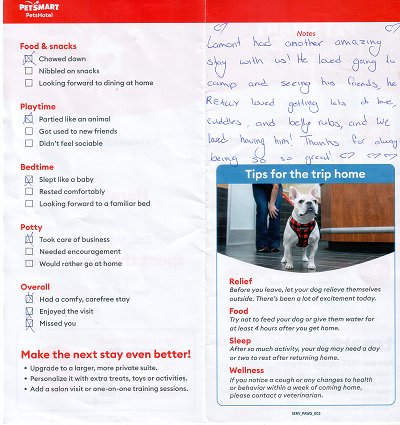 PETSMART
PetsHotel
Food & snacks
Chowed down
Nibbled on snacks
Looking forward to dining at home
Playtime
Partied like an animal
Got used to new friends
Didn't feel sociable
Bedtime
Slept like a baby
Rested comfortably
Looking forward to a familiar bed
Potty
Took care of business
Needed encouragement
Would rather go at home
Overall
Had a comfy, carefree stay
Enjoyed the visit
Missed you
Make the next stay even better!
• Upgrade to a larger, more private suite.
• Personalize it with extra treats, toys or activities.
• Add a salon visit or one-on-one training sessions.
Notes
Lamont had another amazing
stay with us! He loved going to
camp and seeing his friends, he
REALLY loved getting lots of love,
cuddles, and belly rubs, and we
loved having him! Thanks for always
being so so great!
Tips for the trip home
Relief
Before you leave, let your dog relieve themselves
outside. There's been a lot of excitement today.
Food
Try not to feed your dog or give them water for
at least 4 hours after you get home.
Sleep
After so much activity, your dog may need a day
or two to rest after returning home.
Wellness
If you notice a cough or any changes to health
or behavior within a week of coming home,
please contact a veterinarian.